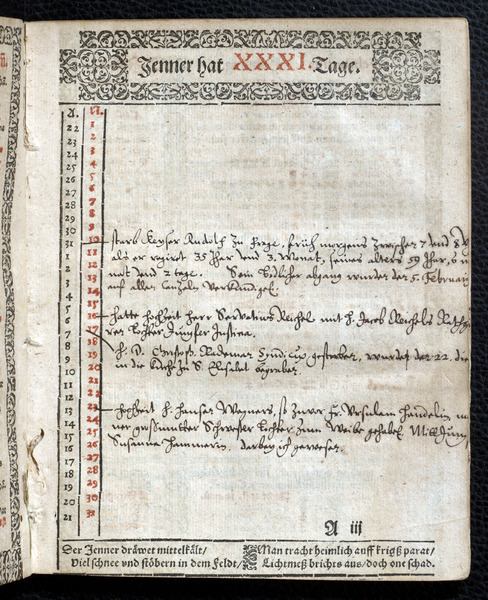 Jenner hat XXXI. Tage.
A. N.
22 1
23 2
24 3
25 4
26 5
27 6
28 7
29 8
30 9
31 10 starb Keyser Rudolf zu Prag, früh morgens zwischen 7 vnd 8
1 11 als er regirt 35 Jhar vnd 3. Monat, seines alters 59 Jhar,
2 12 nat vnd 2 tage. Sein abgang wurde den 5. Februarij
3 13 auf allen Canzeln
4 14
5 15
6 16 hatte hochzeit herr Servatius Reichel mit h. Jacob Reichels
7 17 tochter Jungfer Justina.
8 18 h. D. Rademer Syndicus gestorben, wurde den 22. die
9 19 in die kirche zu S. Elisabet begraben.
10 20
11 21
12 22
13 23 hochzeit h. hansen Wagners, so zuvor fr. Ursulam
14 24 Schwester tochter zum Weibe gehabt. Mitt Jung.
15 25 Susanna darbey ich gewesen.
16 26
17 27
18 28
19 29
20 30
21 31
A iij
Der Jenner dräwet mittelkält/
Viel schnee vnd stöbern in dem Feldt/
Man tracht heimlich auff krigß parat/
Lichtmeß brichts aus/ doch one schad.